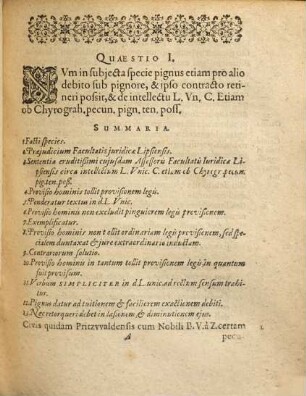 QUAESTIO I,
NUm in subjecta specie pignus etiam pro alio
debito sub pignore, & ipso contracto reti-
neri possit, & de intellectu L. Vn, C. Etiam
ob Chyrograh, pecun, pign, ten, poss.
SUMMARIA.
1. Facti species.
2. Praejudicium Facultatis juridicae Lipsensis.
3. Sententia eruditissimi cujusdam Assessoris Facultatis Iuridicae Lip-
sensis circa intellectum L. Vnic. C. etiam ob Chyrogr pecun.
pig. ten. poss.
4. Provisio hominis tollit provisionem legis.
5. Ponderatur textus in d L. Vnic.
6. Provisio hominis non excludit pinguiorem legis provisionem.
7. Exemplificatur.
8. Provisio hominis non tollit ordinariam legis provisionem, sed spe-
cialem duntaxat & jure extraordinario inductam.
9. Contrariorum solutio.
10. Provisio hominis in tantum tollit provisionem legis in quantum
suit provisum.
11. Verbum SIMPLICITER in d L. unica ad rectum sensum trahi-
tur.
12. Pignus datur ad tuitionem & faciliorem exactionem debiti.
13. Nec retorqueri debet in laesionem & diminutionem ejus.
Civis quidam Pritzvvaldensis cum Nobili B. V. à Z. certam
1
A
pecu-